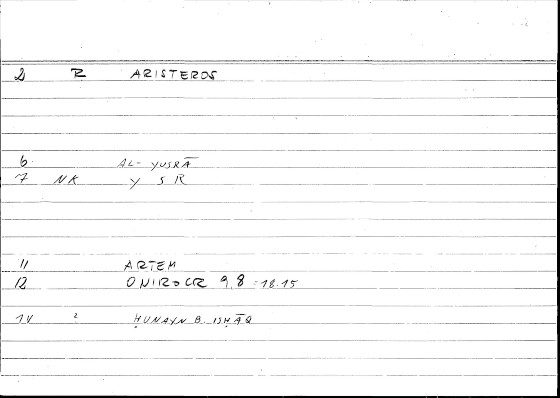 2 R ARISTEROS
6 AL-YUSRĀ
7 NK Y S R
11 ARTEM
12 ONIROCR 9,8 = 18.15
14 2 ḤUNAYN B. ISḤĀQ